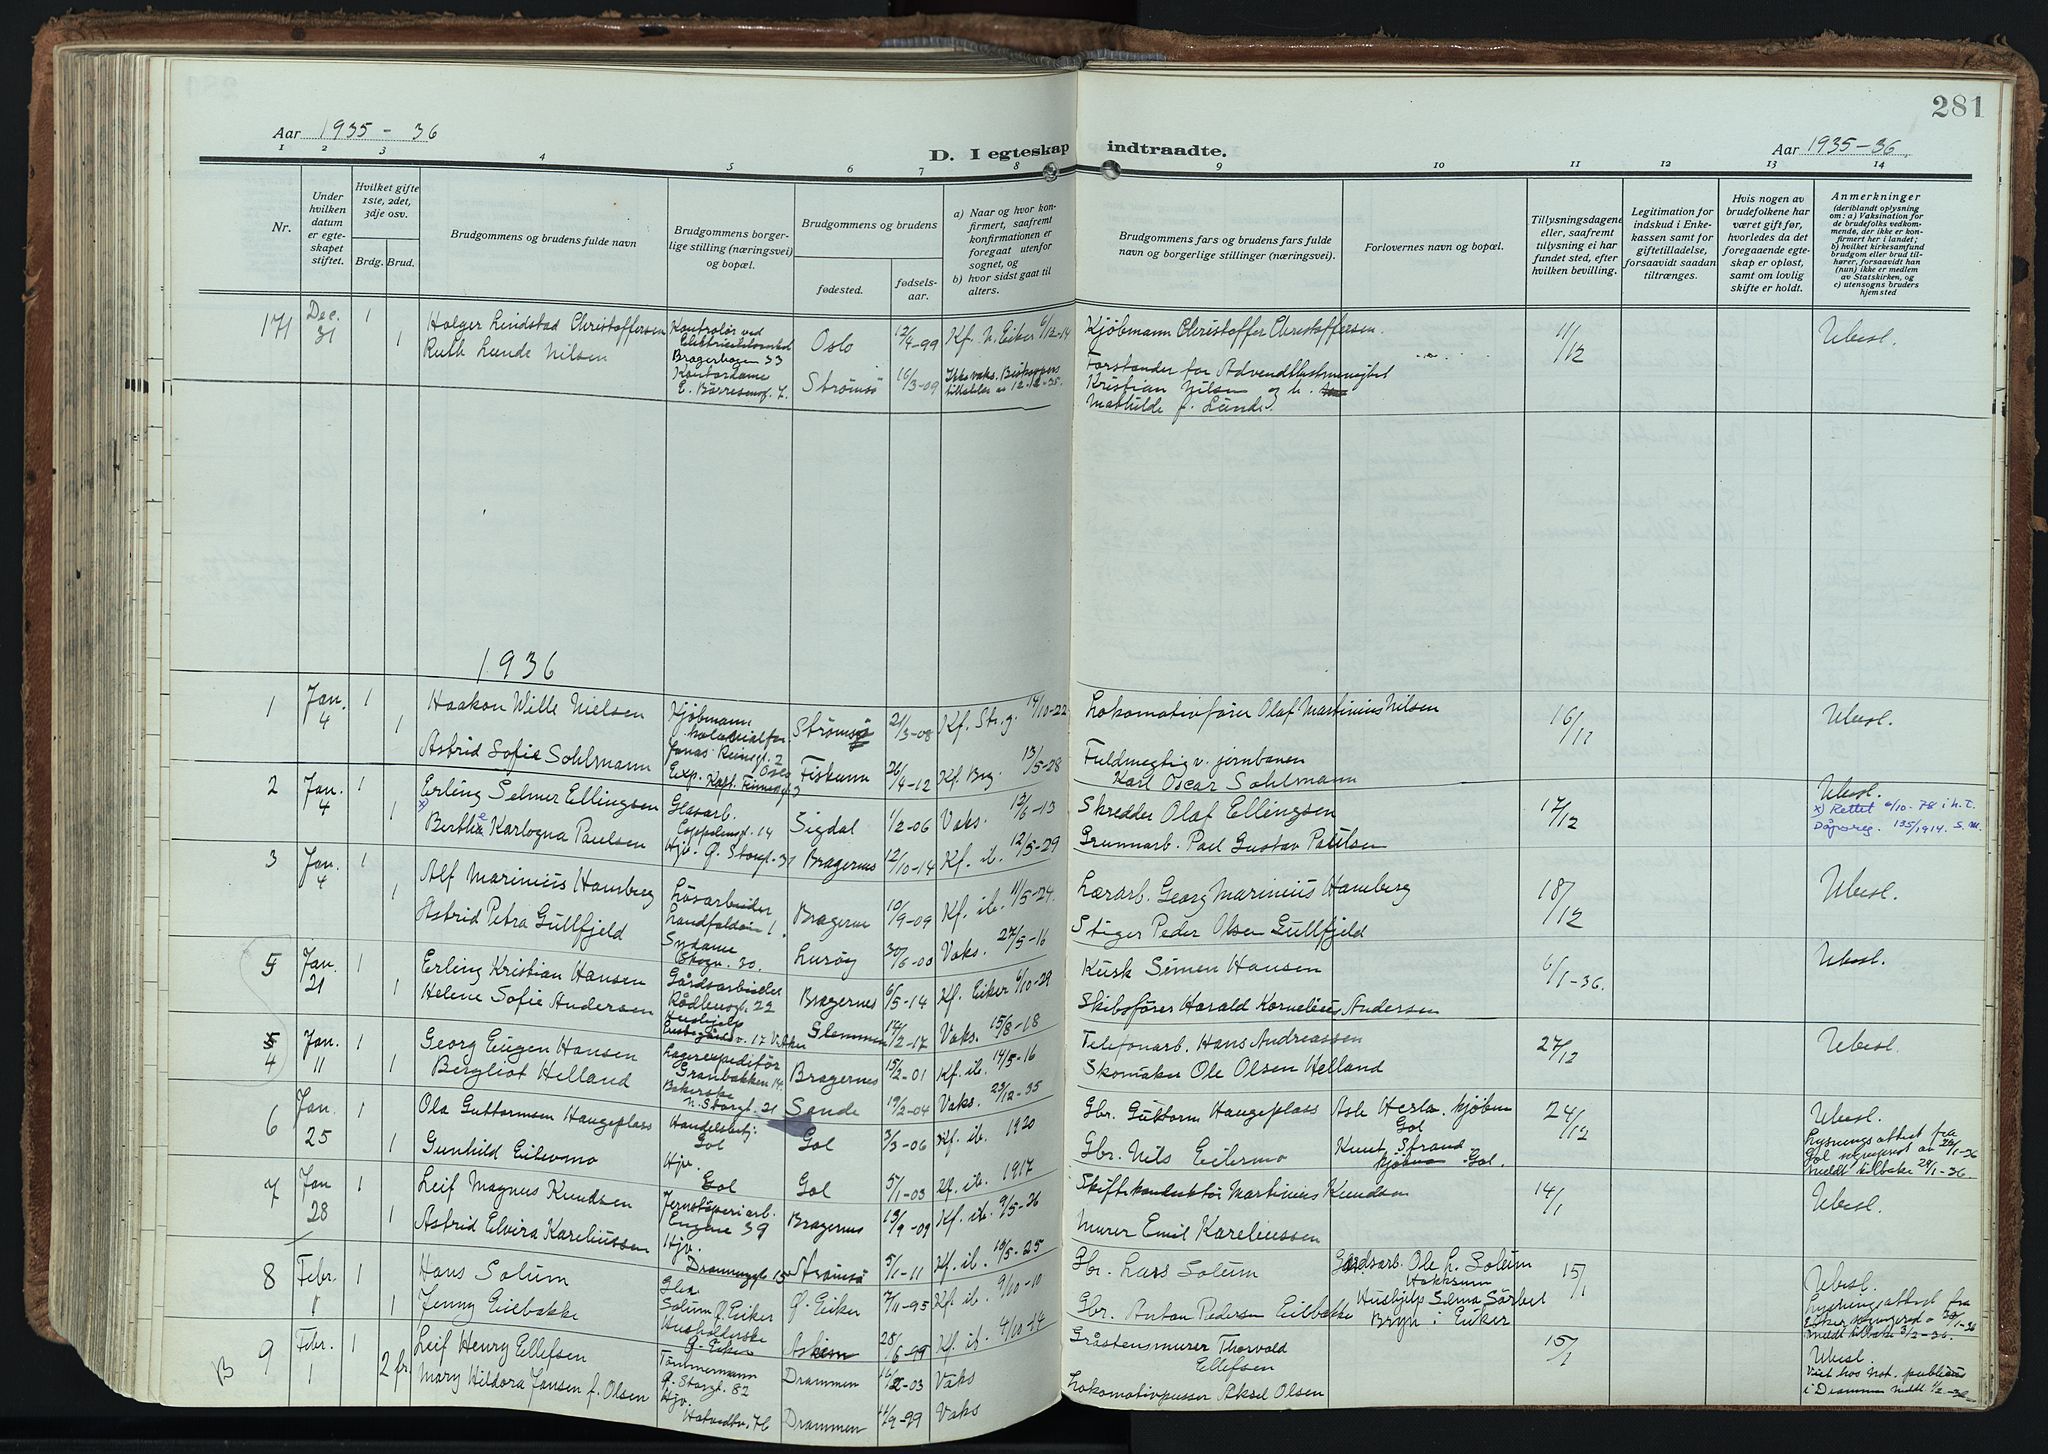 281
Aar 1935 - 36
D. I egteskap indtraadte.
Aar 1935-36
1 2 3 4 5 6 7 8 9 10 11 12 13 14
Nr.
Under hvilken datum er egteskapet stiftet.
Hvilket gifte 1ste, 2det, 3dje osv.
Brdg. Brud.
Brudgommens og brudens fulde navn
Brudgommens borgerlige stilling (næringsvei) og bopæl.
Brudgommens og brudens
fødested.
fødselsaar.
a) Naar og hvor konfirmert, saafremt konfirmationen er foregaat utenfor sognet, og
b) hvor sidst gaat til alters.
Brudgommens fars og brudens fars fulde navn og borgerlige stillinger (næringsvei).
Forlovernes navn og bopæl.
Tillysningsdagene eller, saafremt tillysning ei har fundet sted, efter hvilken bevilling.
Legitimation for indskud i Enkekassen samt for giftetilladelse, forsaavidt saadan tiltrænges.
Hvis nogen av brudefolkene har været gift før, hvorledes da det foregaaende egteskap er opløst, samt om lovlig skifte er holdt.
Anmerkninger
(deriblandt oplysning om: a) Vaksination for de brudefolks vedkommende, der ikke er konfirmert her i landet; b) hvilket kirkesamfund brudgom eller brud tilhører, forsaavidt han (hun) ikke er medlem av Statskirken, og c) utensogns bruders hjemsted
171 Dec. 31 1 Holger Lindstad Christoffersen Kontrolør ved Oslo 12/4-99 Kf. N. Eiker 6/12-14 Kjøbmann Christoffer Christoffersen 11/12 Ubesl.
1 Ruth Lunde Nilsen Kontordame E. Børresensg. 7. Strømsø 16/3-09 Ikke vaks. Biskoppens tillatelse av 12-12-35. Forstander for Adventistmenighet
Kristian Nilsen og h.
Mathilde f. Lunde.
1936
1 Jan. 4 1 Haakon Wille Nielsen Kjøbmann Strømsø 21/3-08 Kf. Str.g. 14/10-22 Lokomotivfører Olaf Martinius Nilsen 16/12 Ubesl.
1 Astrid Sofie Sohlmann Fiskum 26/4-12 Kf. Brg. 13/5-28 Fuldmegtig v. jernbanen
Karl Oscar Sohlmann
2 Jan. 4 1 Erling Selmer Ellingsen Glasarb. Sigdal 1/2-06 Vaks. 12/6-13 Skredder Olaf Ellingsen 17/12 Ubesl.
1 x) Berthe Karlogna Paulsen Hjv. Ø. Storgt. 31 Bragernes 12/10-14 Kf. ib. 12/5-29 Grunnarb. Paul Gustav Paulsen
x) Rettet 6/10-78 i h.t.
Dåpsreg. 135/1914. S.M.
3 Jan. 4 1 Alf Marinius Hamberg Løsarbeider Landfaldøien 1. Bragernes 10/9-09 Kf. ib. 11/5-24. Lærarb. Georg Marinius Hamberg 18/12 Ubesl.
1 Astrid Petra Gullfjeld Sydame Lurøy 30/6-00 Vaks. 27/5-16 Stiger Peder Olsen Gullfjeld
5 Jan. 21 1 Erling Kristian Hansen Gårdsarbeider Bragernes 6/5-14 Kf. Eiker 6/10-29 Kusk Simen Hansen 6/1-36. Ubesl.
1 Helene Sofie Andersen Hushjelp Slemmen 14/2-17 Vaks. 15/8-18 Skibsfører Harald Kornelius Andersen
4 Jan. 11 1 Georg Eugen Hansen Lagerexpeditør Granbakken 14. Bragernes 15/2-01 Kf. ib. 14/5-16 Telefonarb. Hans Andreassen 27/12 Ubesl.
Bergliot Helland N. Storgt. 21 Sande 19/2-04 Vaks. 23/12-35 Skomaker Ole Olsen Helland
6 Jan. 25 1 Ola Guttormsen Haugeplass Handelsbetj. Gol Gol 3/3-06 Kf. ib. 1920 Gbr. Guttorm Haugeplass Asle Hesla. kjøbm Gol 24/12 Ubesl.
1 Gunhild Eilevmo Hjv. Gol Gol 5/1-03 Kf. ib. 1917 Gbr. Nils Eilermo Knut Strand Gol.
Lysningsattest fra
Gol
meldt tilbake 29/1-36.
7 Jan 28 1 Leif Magnus Knudsen Engene 39 Bragernes 13/9-09 Kf. ib. 9/5-26 Skiftekonduktør Martinius Knudsen 14/1 Ubesl.
1 Astrid Elvira Kareliussen Hjv. Drammengt. Strømsø 5/1-11 Kf. ib. 10/5-25 Murer Emil Kareliussen
8 Febr. 1 1 Hans Solum Solum Ø. Eiker Ø. Eiker 7/11-95 Kf. ib. 9/10-10 Gbr. Lars Solum Gårdsarb. Ole L. Solum Hokksum 15/1 Ubesl.
1 Jenny Eilbakke Husholderske Ø. Eiker Askim 28/6-99 Kf. ib. 4/10-14 Gbr. Anton Pedersen Eilbakke Hushjelp Selma Sørbel Bryn i Eiker
Lysningsattest fra
meldt tilbake 3/2-36.
B 9 Febr. 1 1 Leif Henry Ellefsen Tømmermann Ø. Storgt. 82 Drammen 16/2-03 Vaks Gråstensmurer Thorvald Ellefsen 15/1 Ubesl.
2 fr. Mary Hildora Jansen f. Olsen Hjv. Drammen 11/9-99 Vaks Lokomotivpusser Aksel Olsen
Viet hos not. publicus
i Drammen meldt 1/2-36